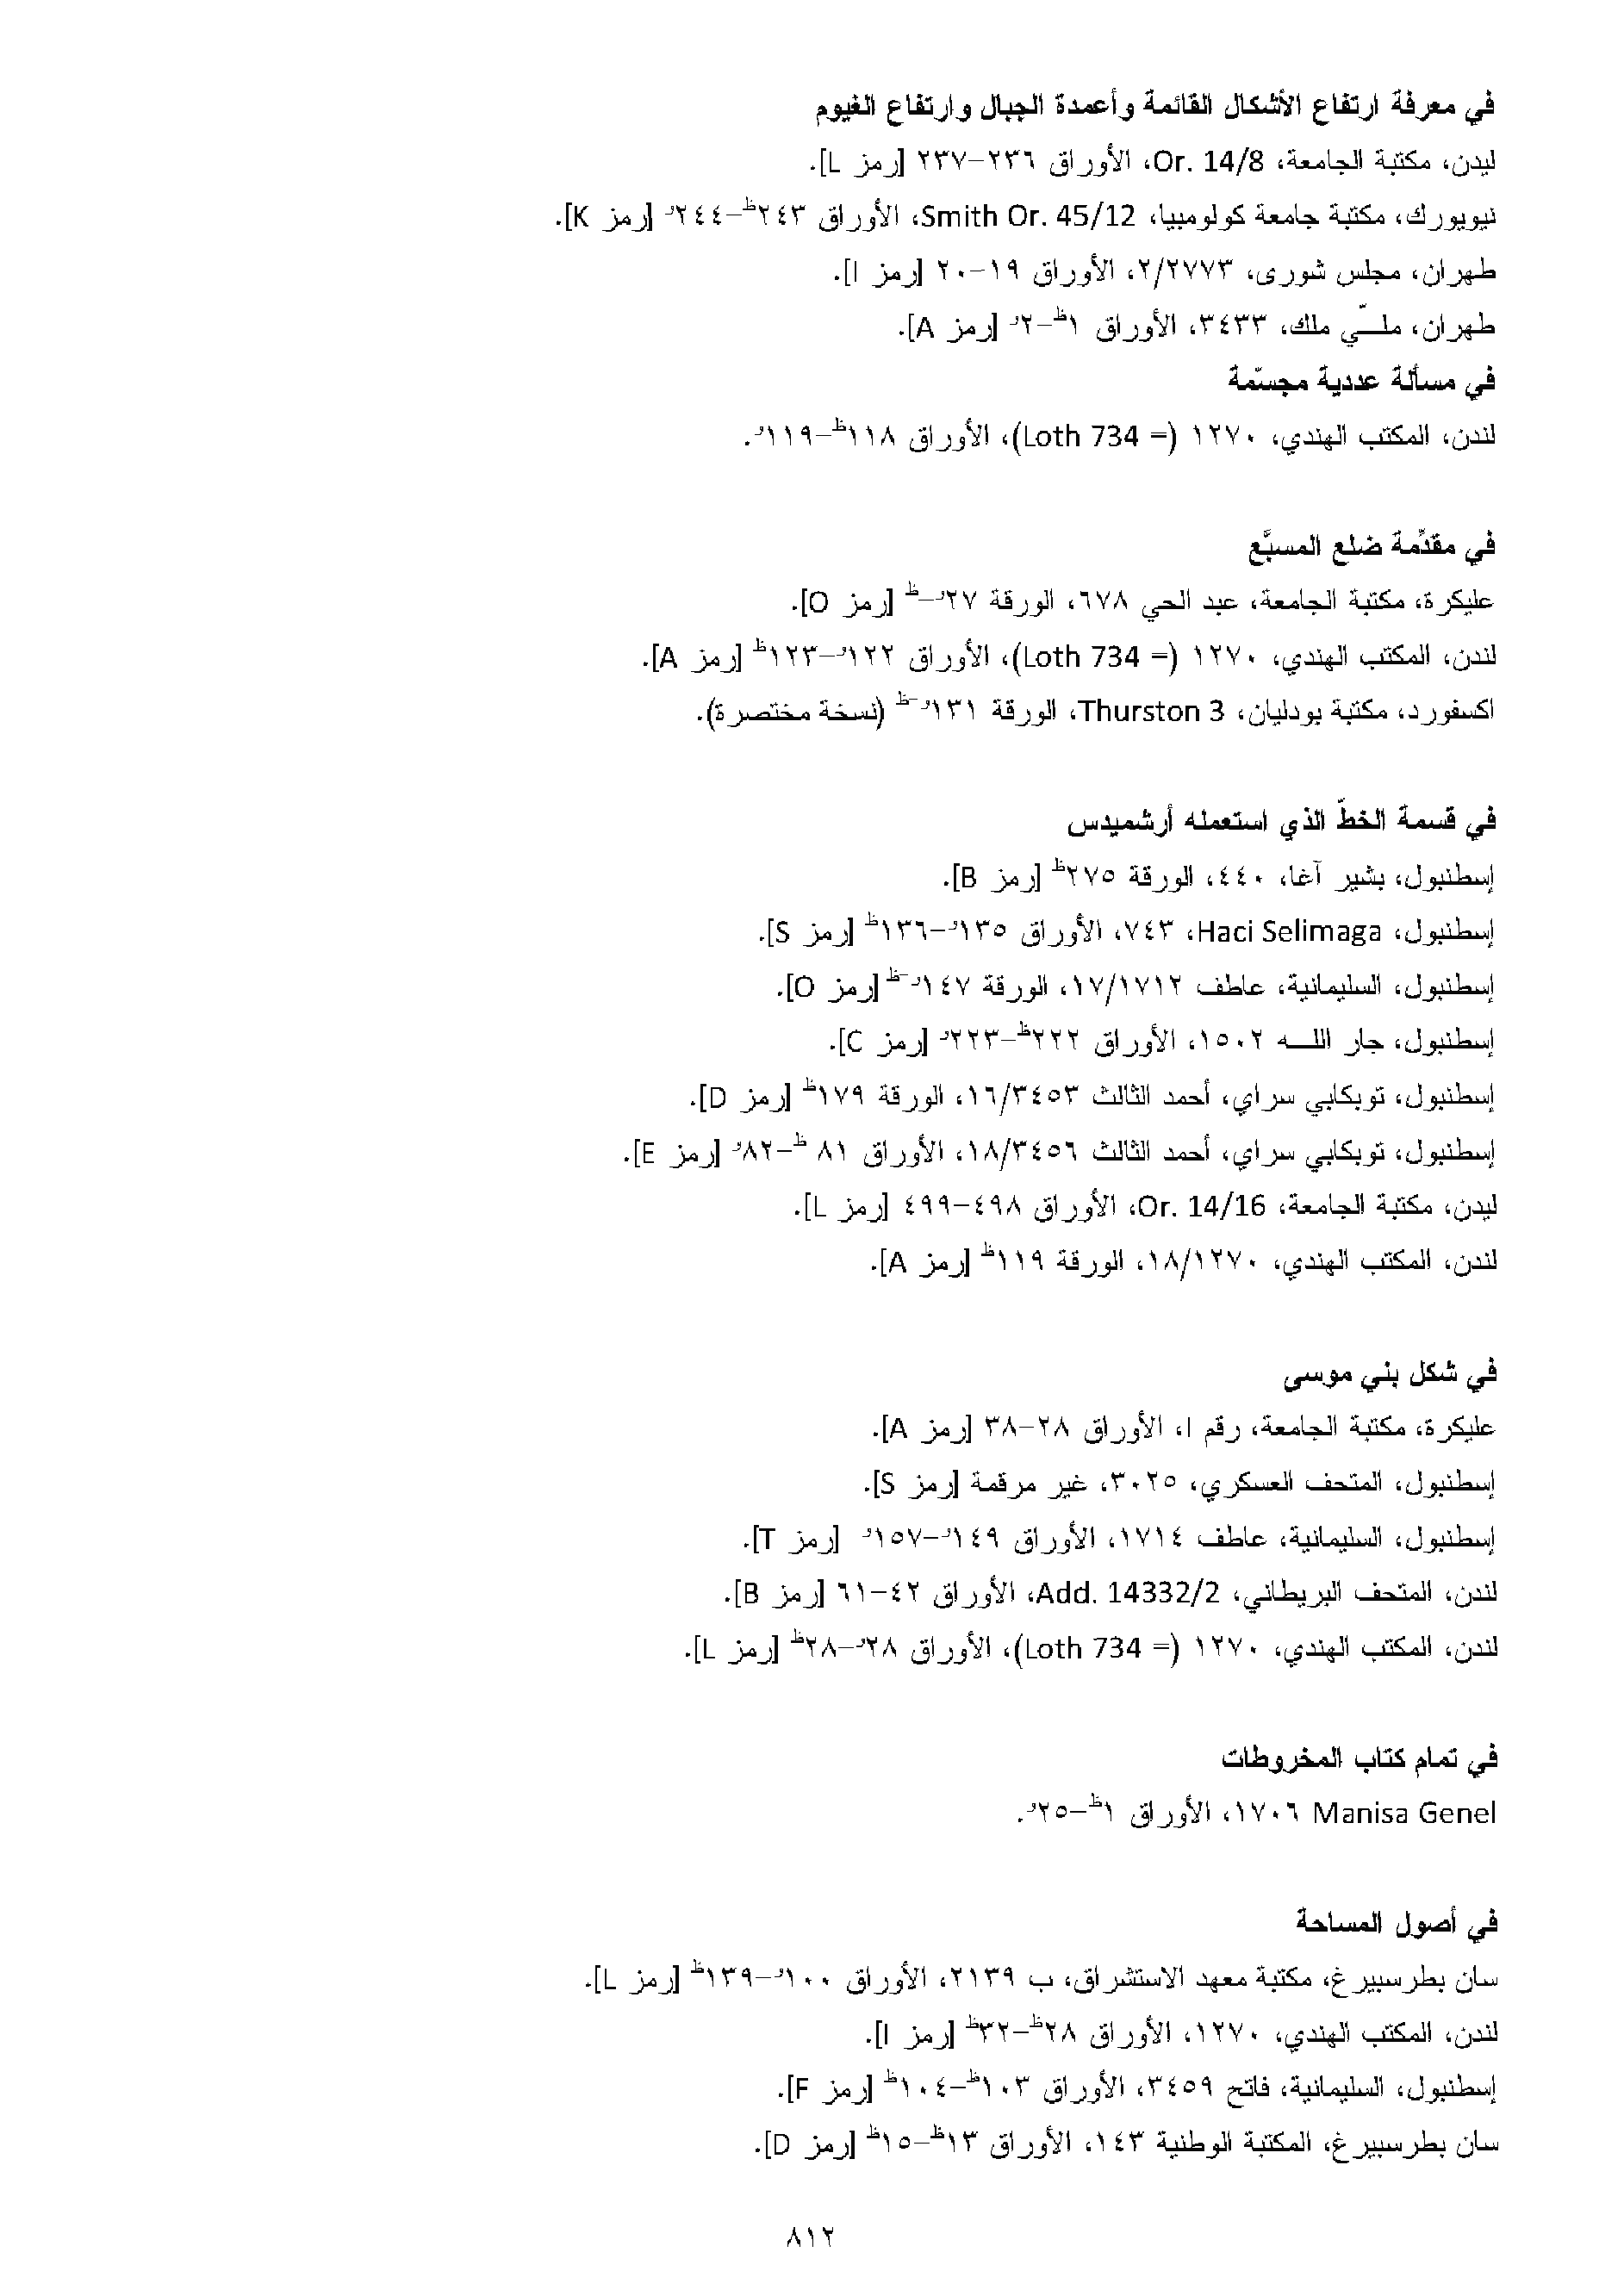 في معرفة ارتفاع الأشكال القائمة وأعمدة الجبال وارتفاع الغيوم
ليدن، مكتبة الجامعة، Or. 14/8، الأوراق ٢٣٦–٢٣٧ [رمز L].
نيويورك، مكتبة جامعة كولومبيا، Smith Or. 45/12، الأوراق ٢٤٣ظ–٢٤٤و [رمز K].
طهران، مجلس شورى، ٢/٢٧٧٣، الأوراق ١٩–٢٠ [رمز I].
طهران، ملــّي ملك، ٣٤٣٣، الأوراق ١ظ–٢و [رمز A].
في مسألة عددية مجسّمة
لندن، المكتب الهندي، ١٢٧٠ (= Loth 734)، الأوراق ١١٨ظ–١١٩و.
في مقدِّمة ضلع المسبَّع
عليكرة، مكتبة الجامعة، عبد الحي ٦٧٨، الورقة ٢٧و–ظ [رمز O].
لندن، المكتب الهندي، ١٢٧٠ (= Loth 734)، الأوراق ١٢٢و–١٢٣ظ [رمز A].
اكسفورد، مكتبة بودليان، Thurston 3، الورقة ١٣١و–ظ (نسخة مختصرة).
في قسمة الخطّ الذي استعمله أرشميدس
إسطنبول، بشير آغا، ٤٤٠، الورقة ٢٧٥ظ [رمز B].
إسطنبول، Haci Selimaga، ٧٤٣، الأوراق ١٣٥و–١٣٦ظ [رمز S].
إسطنبول، السليمانية، عاطف ١٧/١٧١٢، الورقة ١٤٧و–ظ [رمز O].
إسطنبول، جار اللــه ١٥٠٢، الأوراق ٢٢٢ظ–٢٢٣و [رمز C].
إسطنبول، توبكابي سراي، أحمد الثالث ١٦/٣٤٥٣، الورقة ١٧٩ظ [رمز D].
إسطنبول، توبكابي سراي، أحمد الثالث ١٨/٣٤٥٦، الأوراق ٨١ ظ–٨٢و [رمز E].
ليدن، مكتبة الجامعة، Or. 14/16، الأوراق ٤٩٨–٤٩٩ [رمز L].
لندن، المكتب الهندي، ١٨/١٢٧٠، الورقة ١١٩ظ [رمز A].
في شكل بني موسى
عليكرة، مكتبة الجامعة، رقم ا، الأوراق ٢٨–٣٨ [رمز A].
إسطنبول، المتحف العسكري، ٣٠٢٥، غير مرقمة [رمز S].
إسطنبول، السليمانية، عاطف ١٧١٤، الأوراق ١٤٩و–١٥٧و [رمز T].
لندن، المتحف البريطاني، Add. 14332/2، الأوراق ٤٢–٦١ [رمز B].
لندن، المكتب الهندي، ١٢٧٠ (= Loth 734)، الأوراق ٢٨و–٢٨ظ [رمز L].
في تمام كتاب المخروطات
Manisa Genel ١٧٠٦، الأوراق ١ظ–٢٥و.
في أصول المساحة
سان بطرسبيرغ، مكتبة معهد الاستشراق، ب ٢١٣٩، الأوراق ١٠٠و–١٣٩ظ [رمز L].
لندن، المكتب الهندي، ١٢٧٠، الأوراق ٢٨ظ–٣٢ظ [رمز I].
إسطنبول، السليمانية، فاتح ٣٤٥٩، الأوراق ١٠٣ظ–١٠٤ظ [رمز F].
سان بطرسبيرغ، المكتبة الوطنية ١٤٣، الأوراق ١٣ظ–١٥ظ [رمز D].
٨١٢